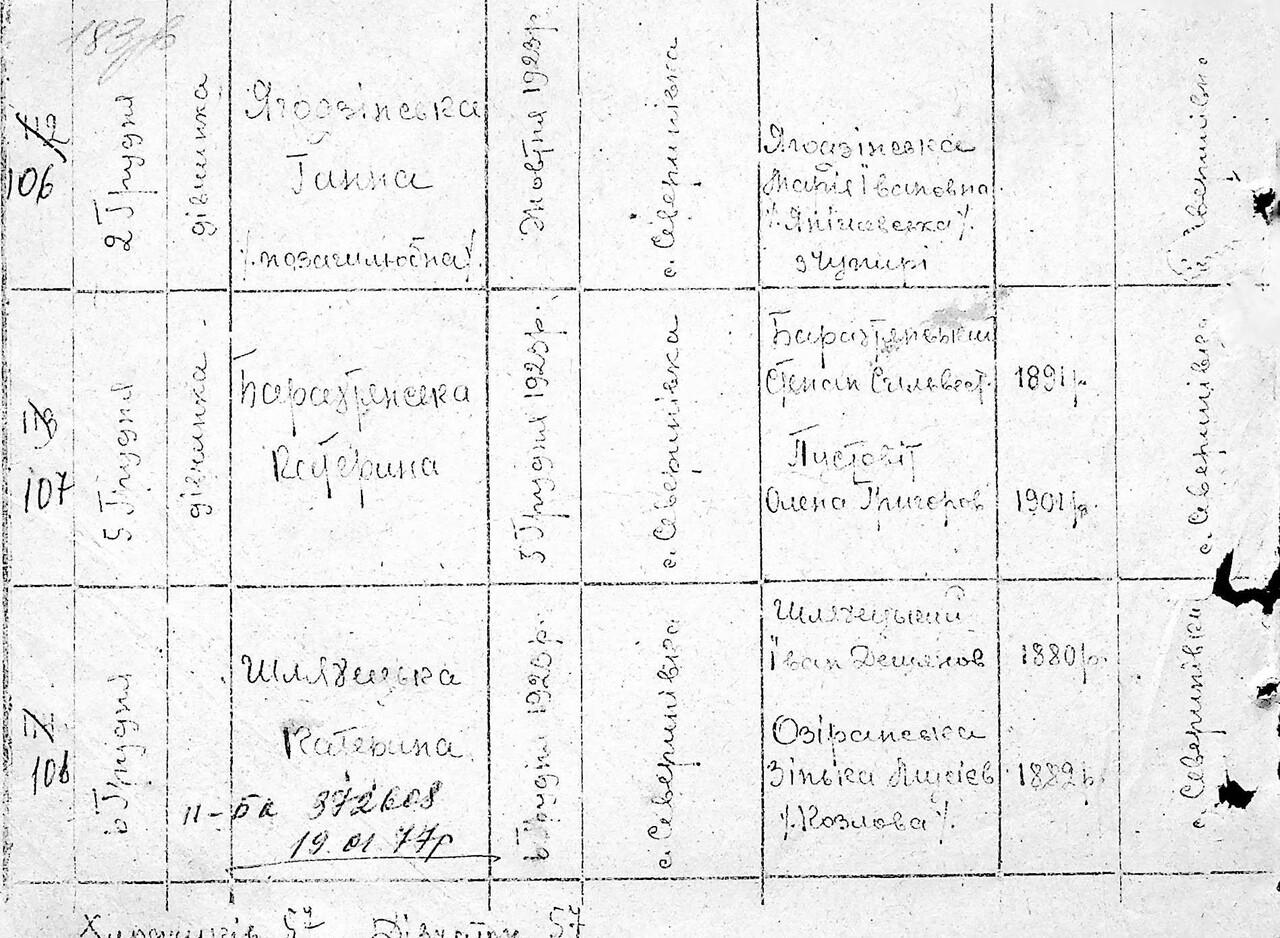 106
2 Грудня
дівчинка
Ягодзінська
Ганна
/.позашлюбна/.
Жовтня 1923р.
с. Северинівка
Ягодзінська
Марія Івановна
/.Янішевська/.
з Чупирі
107
5 Грудня
дівчинка
Баразтенська
Катерина
3 Грудня 1923р.
с. Северинівка
Степан Сильвест.
1891р.
Пустовіт
Олена Григоров
1901р.
с. Северинівка
106
6 Грудня
Шляхецька
Катерина
II-БА 372608
19.01.77р
6 Грудня 1923р.
с. Северинівка
Шляхецький
Іван Демянов
1880р.
Озіранська
Зінька Мусієв
1882р.
/.Козлова/.
с. Северинівки
Хлопчиків 57 Дівчаток 57